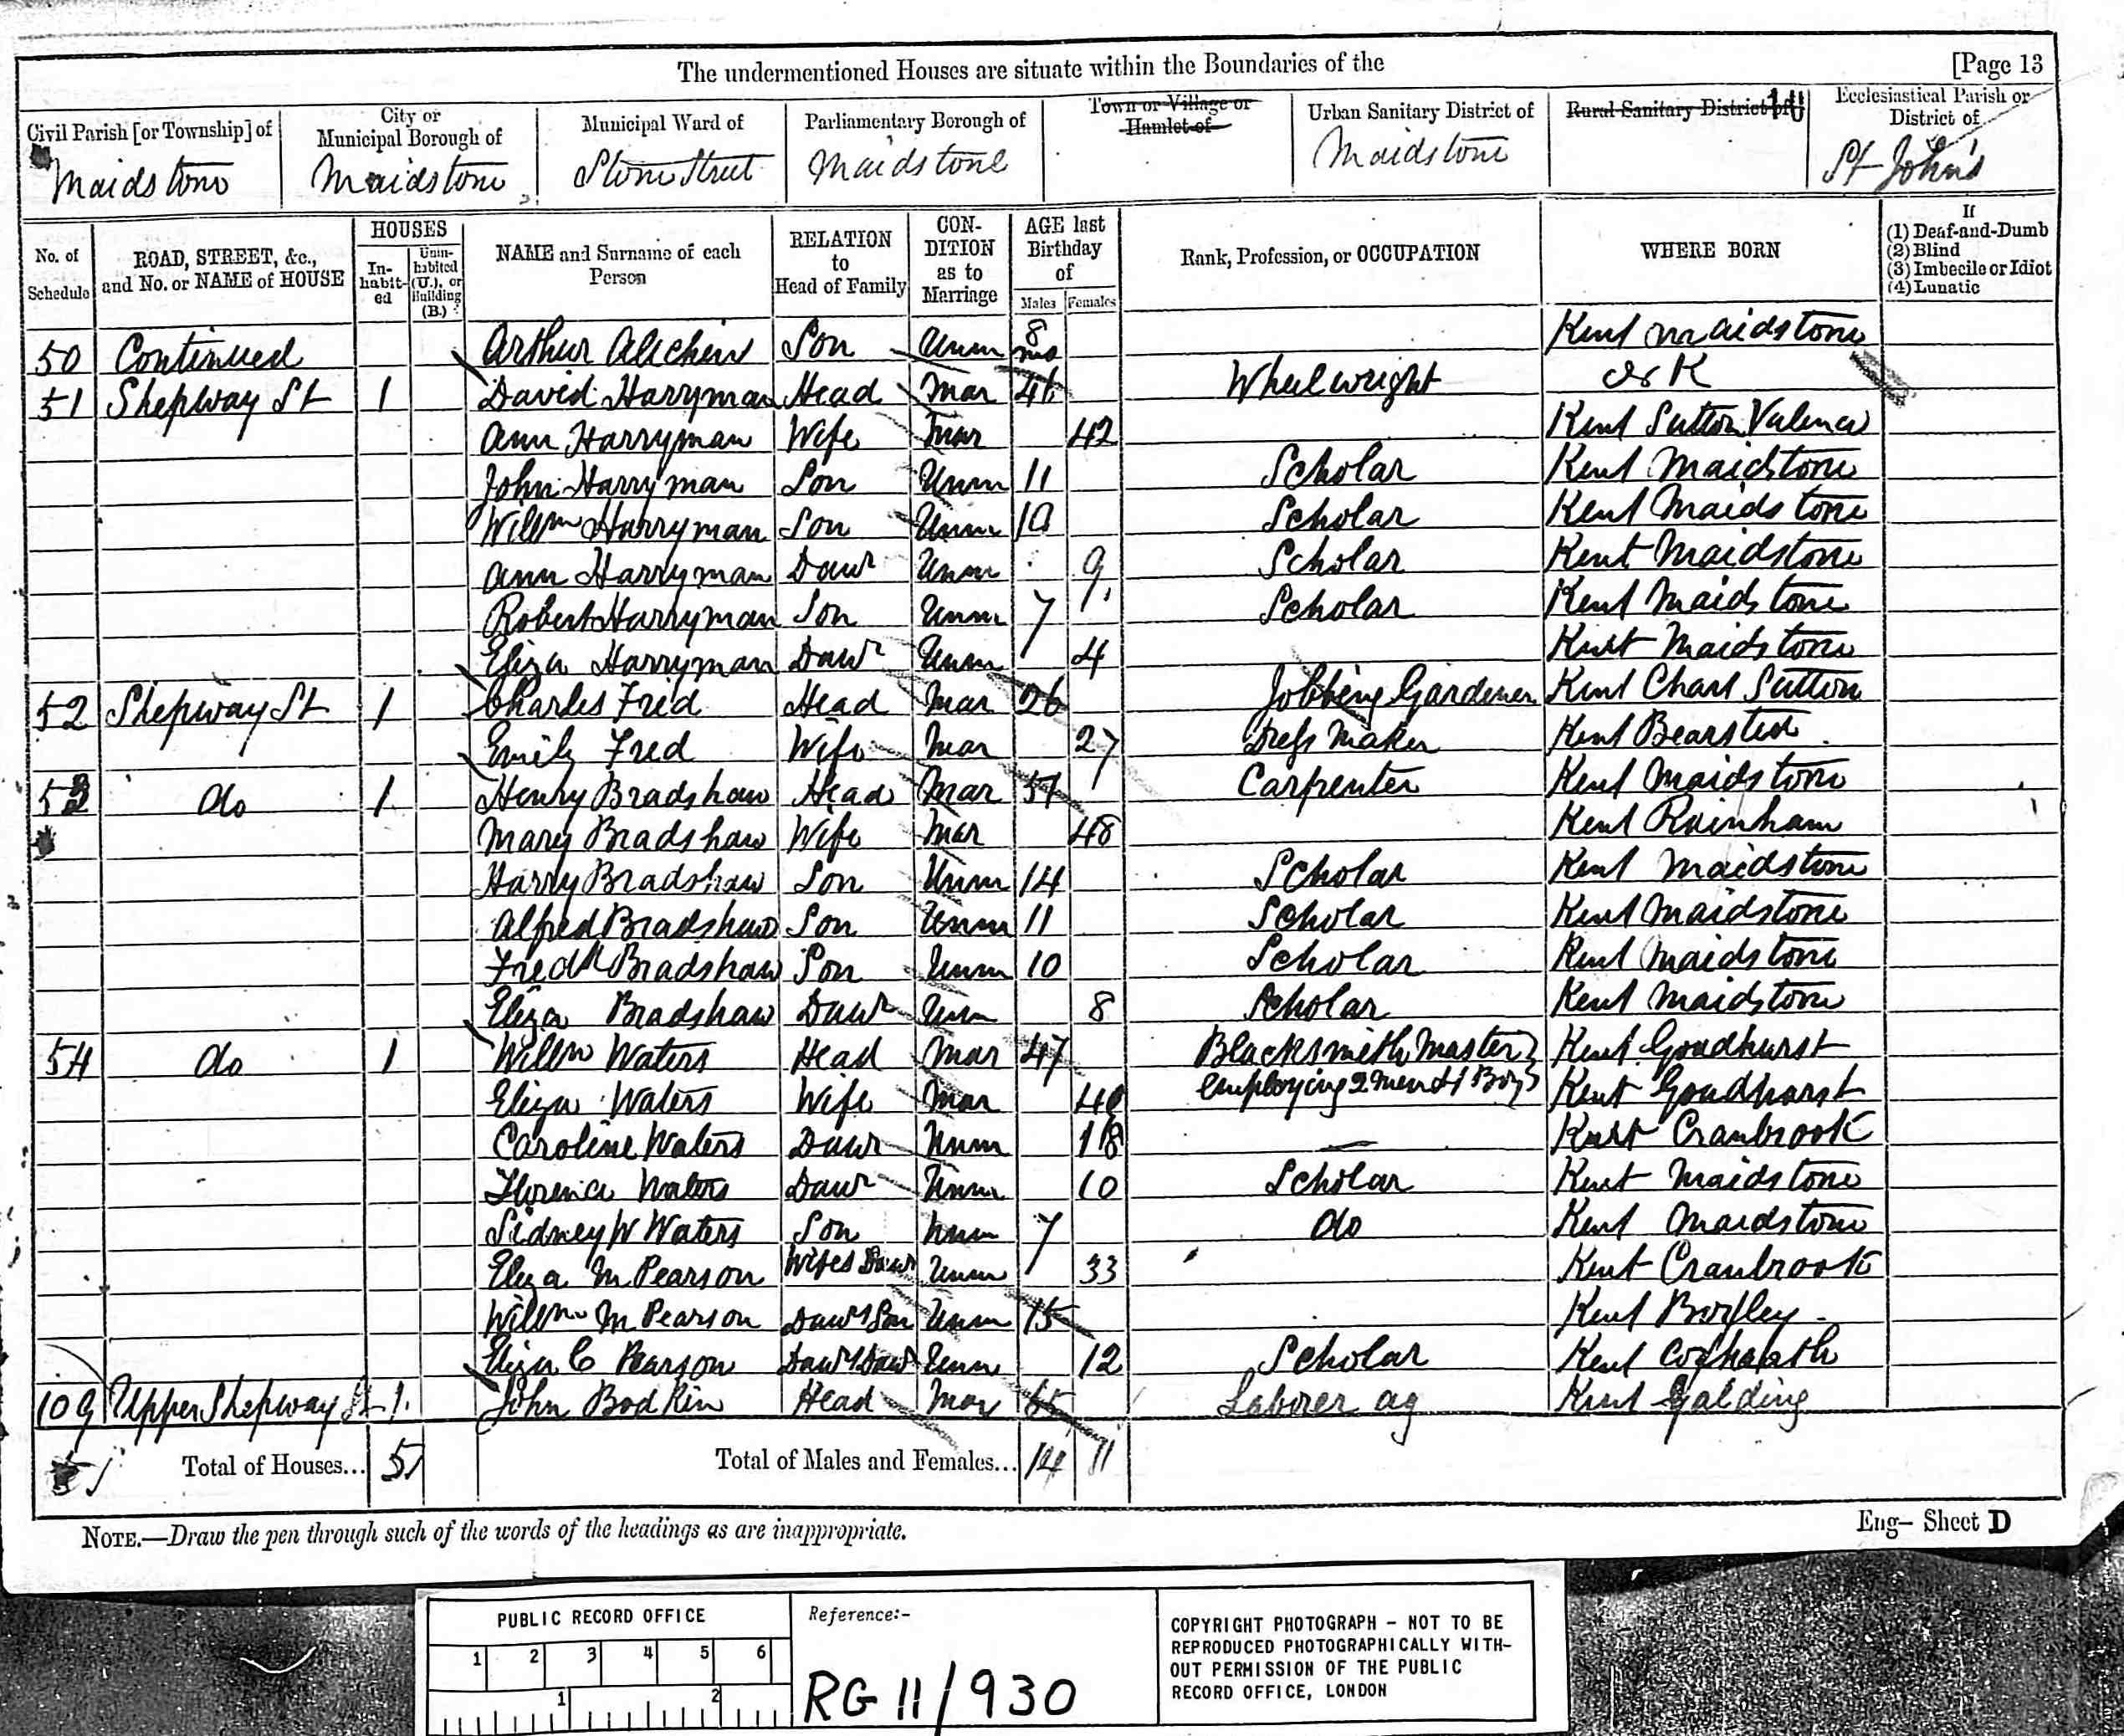 The undermentioned Houses are situate within the Boundaries of the [Page 13
Civil Parish [or Township] of City or Municipal Borough of Municipal Ward of Parliamentary Borough of Town or Village or Hamlet of Urban Sanitary District of Rural Sanitary District of Ecclesiastical Parish or District of
Maidstone Maidstone Stone Street Maidstone Maidstone St John's
No. of Schedule ROAD, STREET, &c., and No. or NAME of HOUSE HOUSES Inhabited Uninhabited (U.), or Building (B.) NAME and Surname of each Person RELATION to Head of Family CONDITION as to Marriage AGE last Birthday of Males Females Rank, Profession, or OCCUPATION WHERE BORN If (1) Deaf-and-Dumb (2) Blind (3) Imbecile or Idiot (4) Lunatic
50 Continued Arthur Alichin Son Unm 8 mo Kent Maidstone
51 Shepway St 1 David Harryman Head Mar 46 Wheelwright
Ann Harryman Wife Mar 42 Kent Sutton Valence
John Harryman Son Unm 11 Scholar Kent Maidstone
Willm Harryman Son Unm 10 Scholar Kent Maidstone
Ann Harryman Daur Unm 9 Scholar Kent Maidstone
Robert Harryman Son Unm 7 Scholar Kent Maidstone
Eliza Harryman Daur Unm 4 Kent Maidstone
52 Shepway St 1 Charles Fred Head Mar 26 Jobbing Gardener Kent Chart Sutton
Emily Fred Wife Mar 27 Dress Maker Kent Bearsted
53 do 1 Henry Bradshaw Head Mar 51 Carpenter Kent Maidstone
Mary Bradshaw Wife Mar 48 Kent Rainham
Harry Bradshaw Son Unm 14 Scholar Kent Maidstone
Alfred Bradshaw Son Unm 11 Scholar Kent Maidstone
Fredk Bradshaw Son Unm 10 Scholar Kent Maidstone
Eliza Bradshaw Daur Unm 8 Scholar Kent Maidstone
54 do 1 Willm Waters Head Mar 47 Blacksmith Master Kent Goudhurst
Eliza Waters Wife Mar employing 2 Men & 1 Boy Kent Goudhurst
Caroline Waters Daur Unm 18 — Kent Cranbrook
Florence Waters Daur Unm 10 Scholar Kent Maidstone
Sidney W Waters Son Unm 7 do Kent Maidstone
Eliza M Pearson Wifes Daur Unm 33 Kent Cranbrook
Willm M Pearson Daurs Son Unm 15 Kent
Eliza C Pearson Daurs Daur Unm 12 Scholar Kent
109 Upper Shepway St 1 John Bodkin Head Mar 65 Laborer ag Kent Yalding
Total of Houses... 5 Total of Males and Females... 14 11
NOTE.—Draw the pen through such of the words of the headings as are inappropriate.
Eng— Sheet D
PUBLIC RECORD OFFICE
1 2 3 4 5 6
1 2
Reference:-
RG 11/930
COPYRIGHT PHOTOGRAPH - NOT TO BE
REPRODUCED PHOTOGRAPHICALLY WITH-
OUT PERMISSION OF THE PUBLIC
RECORD OFFICE, LONDON